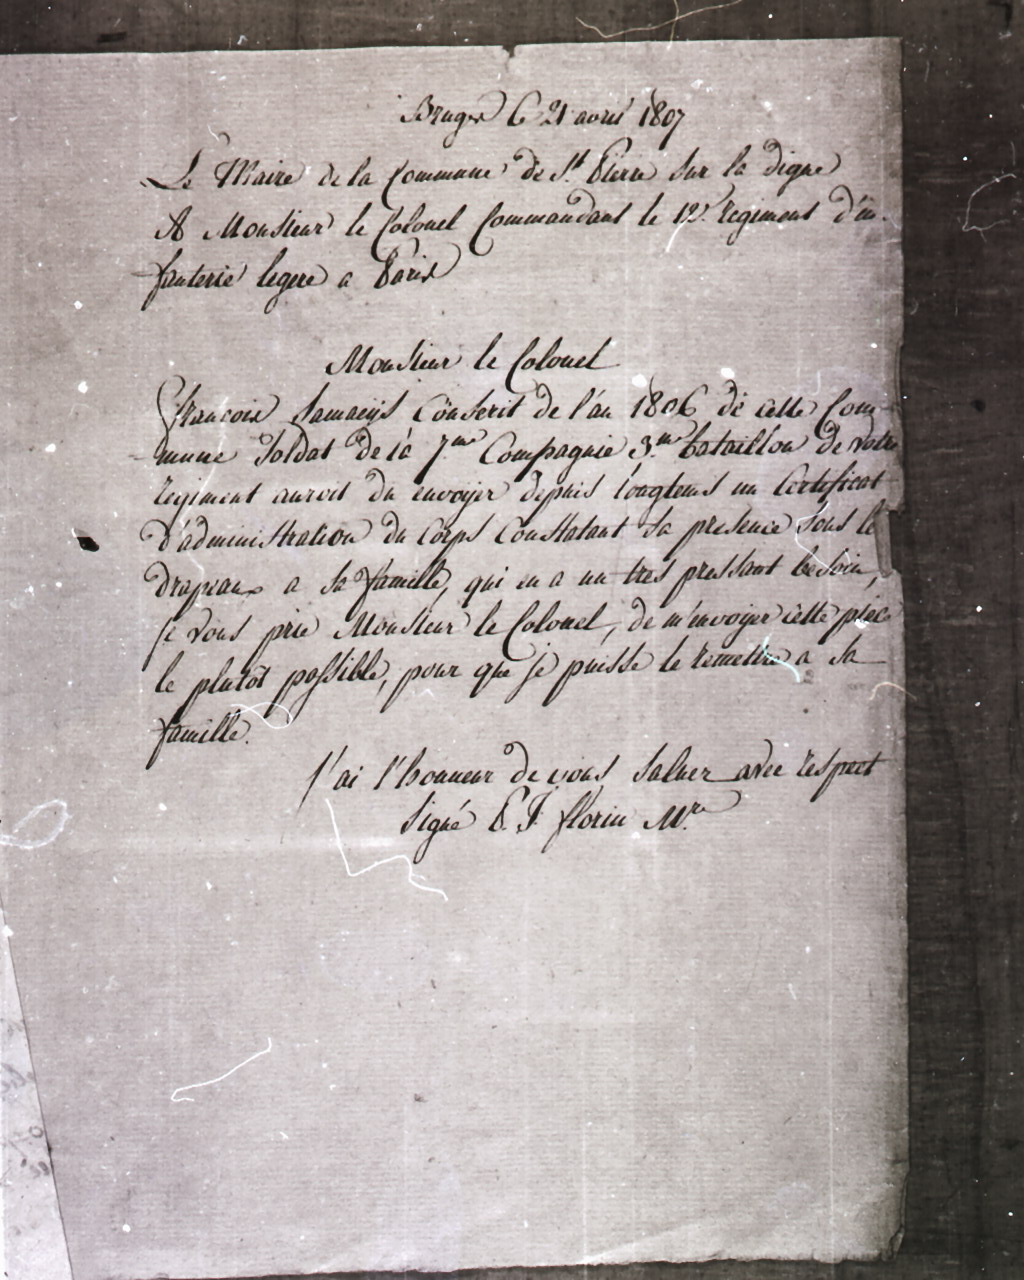 Bruges le 21 avril 1807
Le Maire de la Commune de St. Pierre sur la digue
A Monsieur le Colonel Commandant le 12e. regiment d'in-
fanterie legere a Paris
Monsieur le Colonel
françois Samaeijs Conscrit de l'an 1806 de cette Com-
mune Soldat de la 7me Compagnie 3me bataillon de votre
regiment auroit du envoyer depuis longtems un Certificat
d'administration du Corps Constatant sa presence sous le
drapeaux a sa famille, qui en a un tres pressant besoin,
je vous prie Monsieur le Colonel, de m'envoyer cette piece
le plutot possible, pour que je puisse le remettre a sa
famille.
j'ai l'honneur de vous saluer avec respect
signé P. J. florin Mre